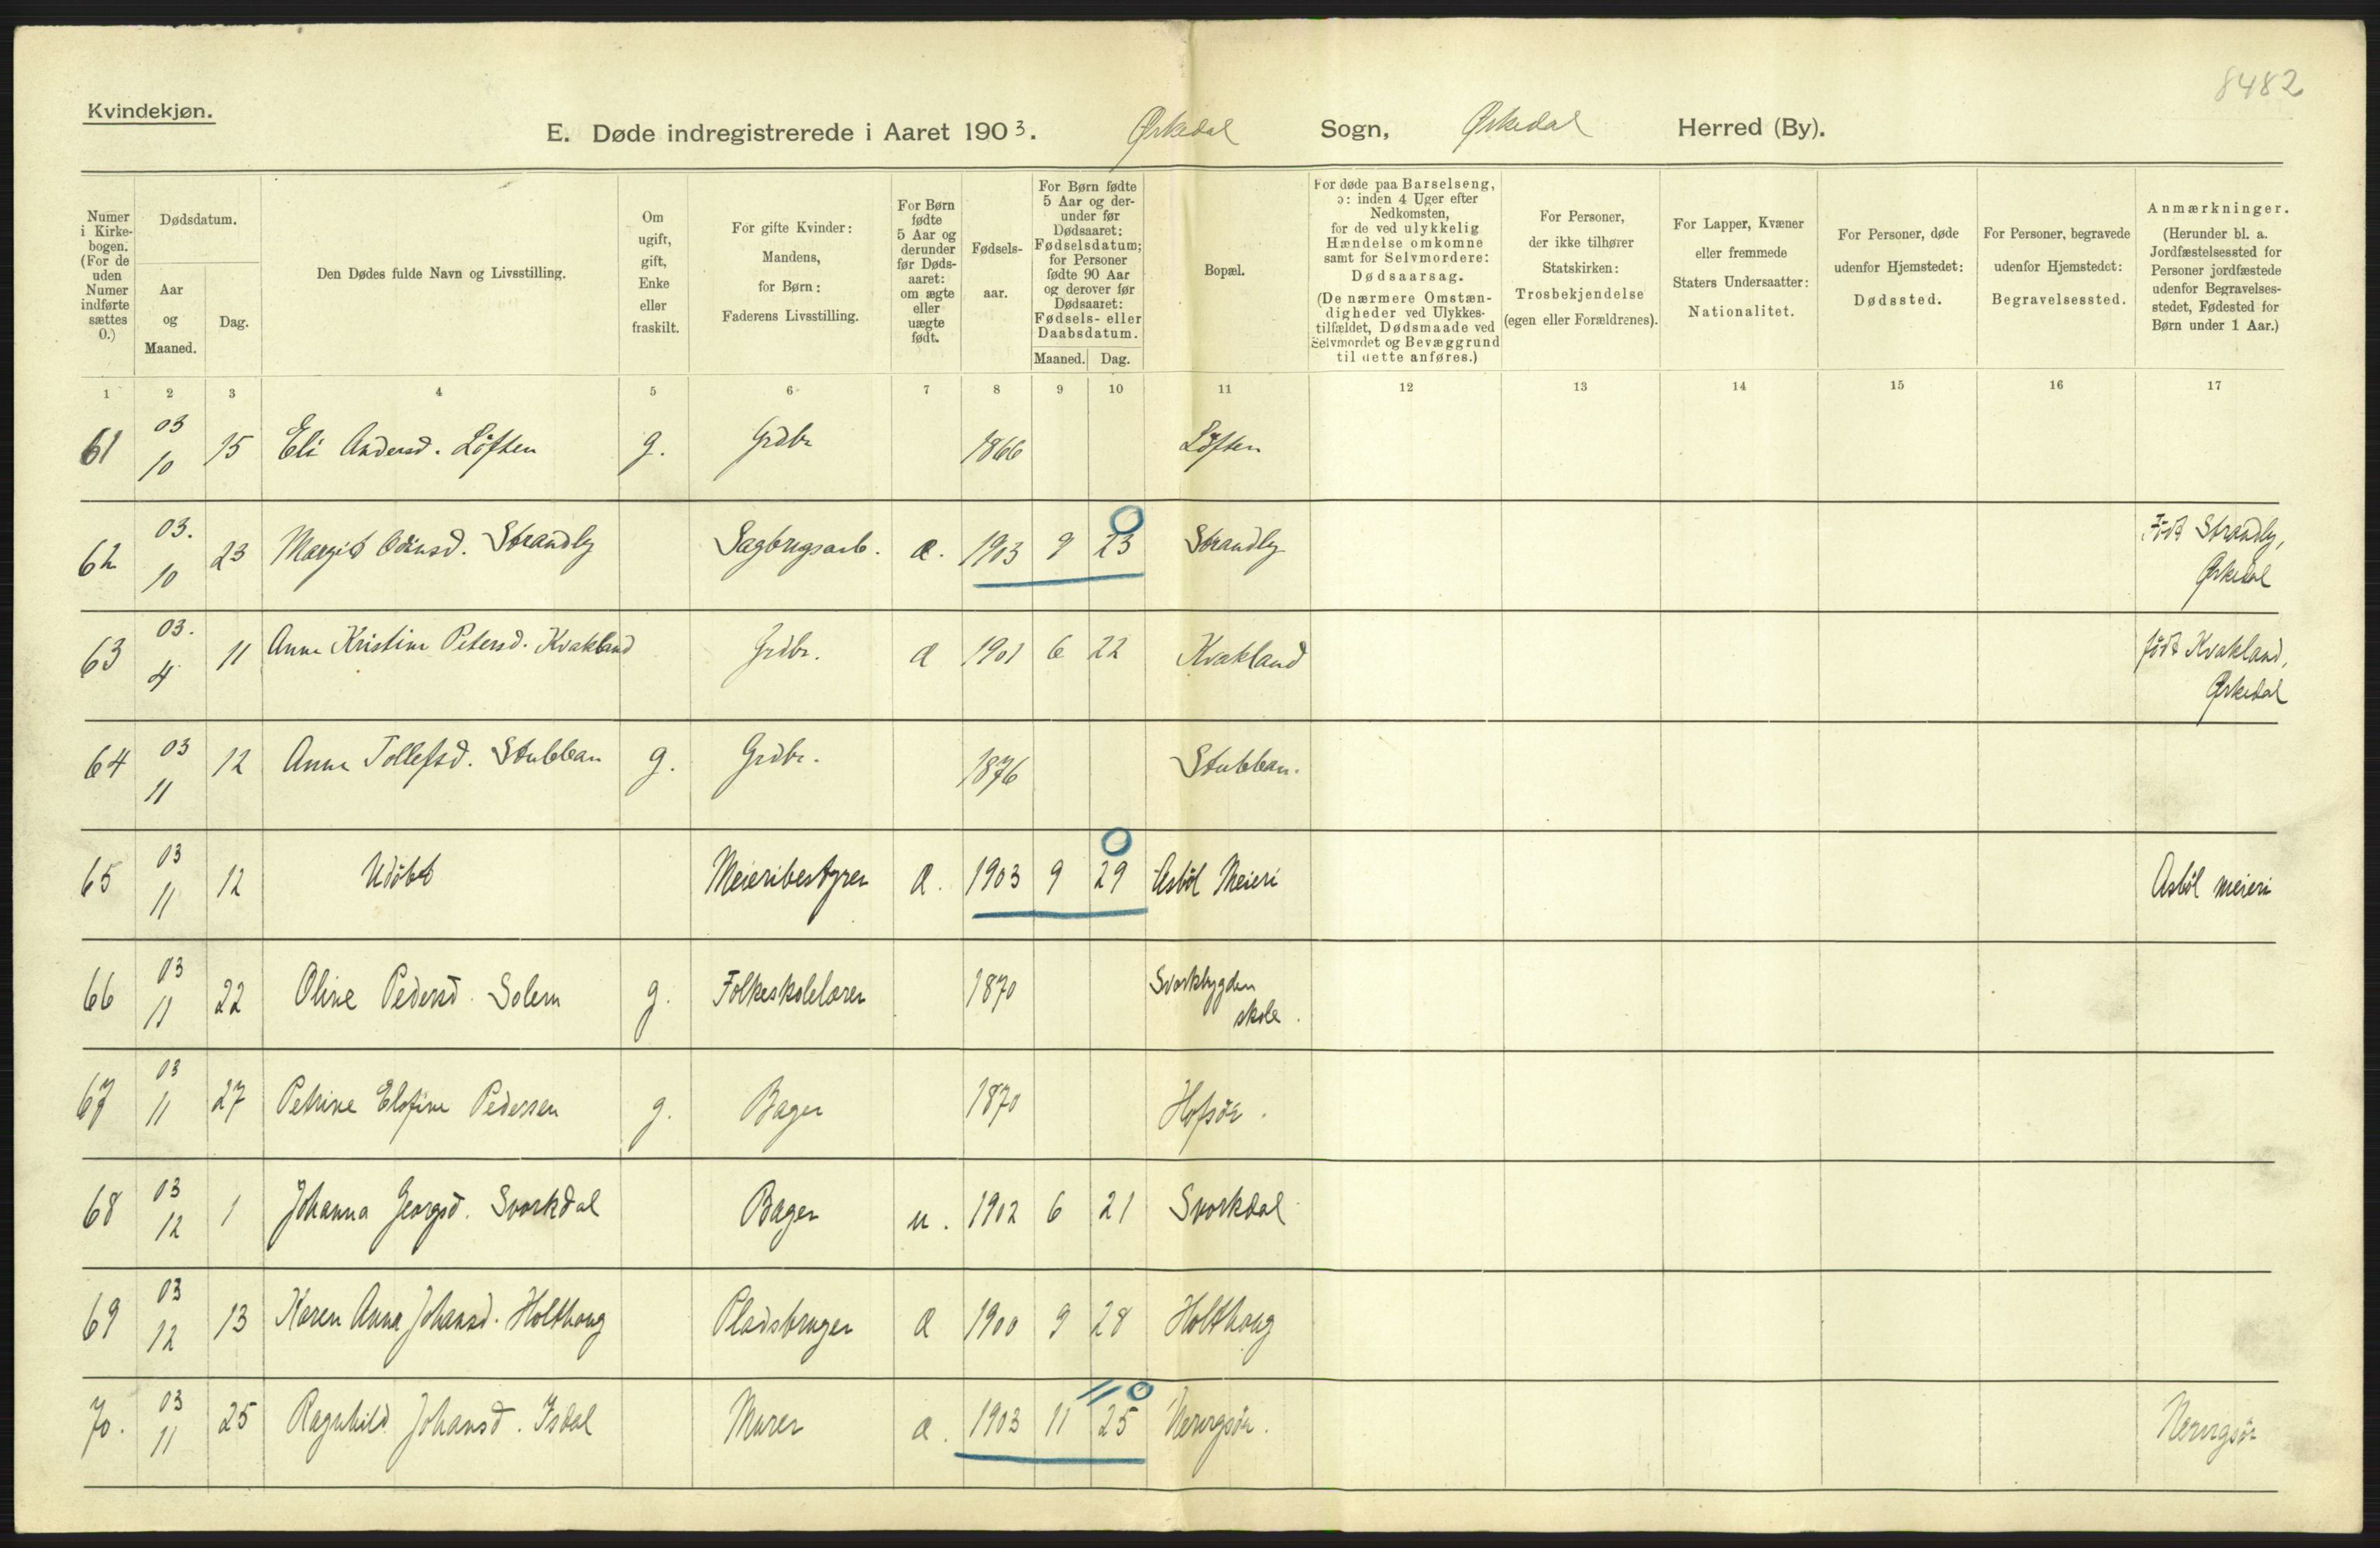 8482
Kvindekjøn.
E. Døde indregistrerede i Aaret 1903. Ørkedal Sogn, Ørkedal Herred (By).
Numer i Kirkebogen. (For de uden Numer indførte sættes 0.)
Dødsdatum.
Aar og Maaned.
Dag.
Den Dødes fulde Navn og Livsstilling.
Om ugift, gift, Enke eller fraskilt.
For gifte Kvinder: Mandens, for Børn: Faderens Livsstilling.
For Børn fødte 5 Aar og derunder før Dødsaaret: om ægte eller uægte født.
Fødselsaar.
For Børn fødte 5 Aar og derunder før Dødsaaret: Fødselsdatum; for Personer fødte 90 Aar og derover før Dødsaaret: Fødsels- eller Daabsdatum.
Maaned. Dag.
Bopæl.
For døde paa Barselseng, ɔ: inden 4 Uger efter Nedkomsten, for de ved ulykkelig Hændelse omkomne samt for Selvmordere: Dødsaarsag. (De nærmere Omstændigheder ved Ulykkestilfældet, Dødsmaade ved Selvmordet og Bevæggrund til dette anføres.)
For Personer, der ikke tilhører Statskirken: Trosbekjendelse (egen eller Forældrenes).
For Lapper, Kvæner eller fremmede Staters Undersaatter: Nationalitet.
For Personer, døde udenfor Hjemstedet: Dødssted.
For Personer, begravede udenfor Hjemstedet: Begravelsessted.
Anmærkninger. (Herunder bl. a. Jordfæstelsessted for Personer jordfæstede udenfor Begravelsesstedet, Fødested for Børn under 1 Aar.)
1 2 3 4 5 6 7 8 9 10 11 12 13 14 15 16 17
61 03 10 15 Eli Andersd. Löften g. Grdbr 1866 Löften
62 03. 10 23 Margit Odinsd. Strandly Sagbrugsarb. æ. 1903 9 23 Strandly Födt Strandly, Ørkedal
63 03. 4 11 Anne Kristine Petersd. Kvakland Grdbr. æ 1901 6 22 Kvakland födt Kvakland, Ørkedal
64 03 11 12 Anne Tollefsd. Stubban g. Grdbr. 1876 Stubban.
65 03 11 12 Udöbt Meieribestyrer æ. 1903 9 29 Asböl Meieri Asböl meieri
66 03 11 22 Oline Pedersd. Solem g. Folkeskolelærer 1870 Svorkbygden skole.
67 03 11 27 Petrine Elefine Pedersen g. Bager 1870 Hofsör.
68 03 12 1 Johanna Georgsd. Svorkdal Bager u. 1902 6 21 Svorkdal
69 03 12 13 Karen Anna Johansd. Holthaug Pladsbruger æ 1900 9 28 Holthaug
70. 03 11 25 Ragnhild Johansd. Isdal Murer æ. 1903 11 25